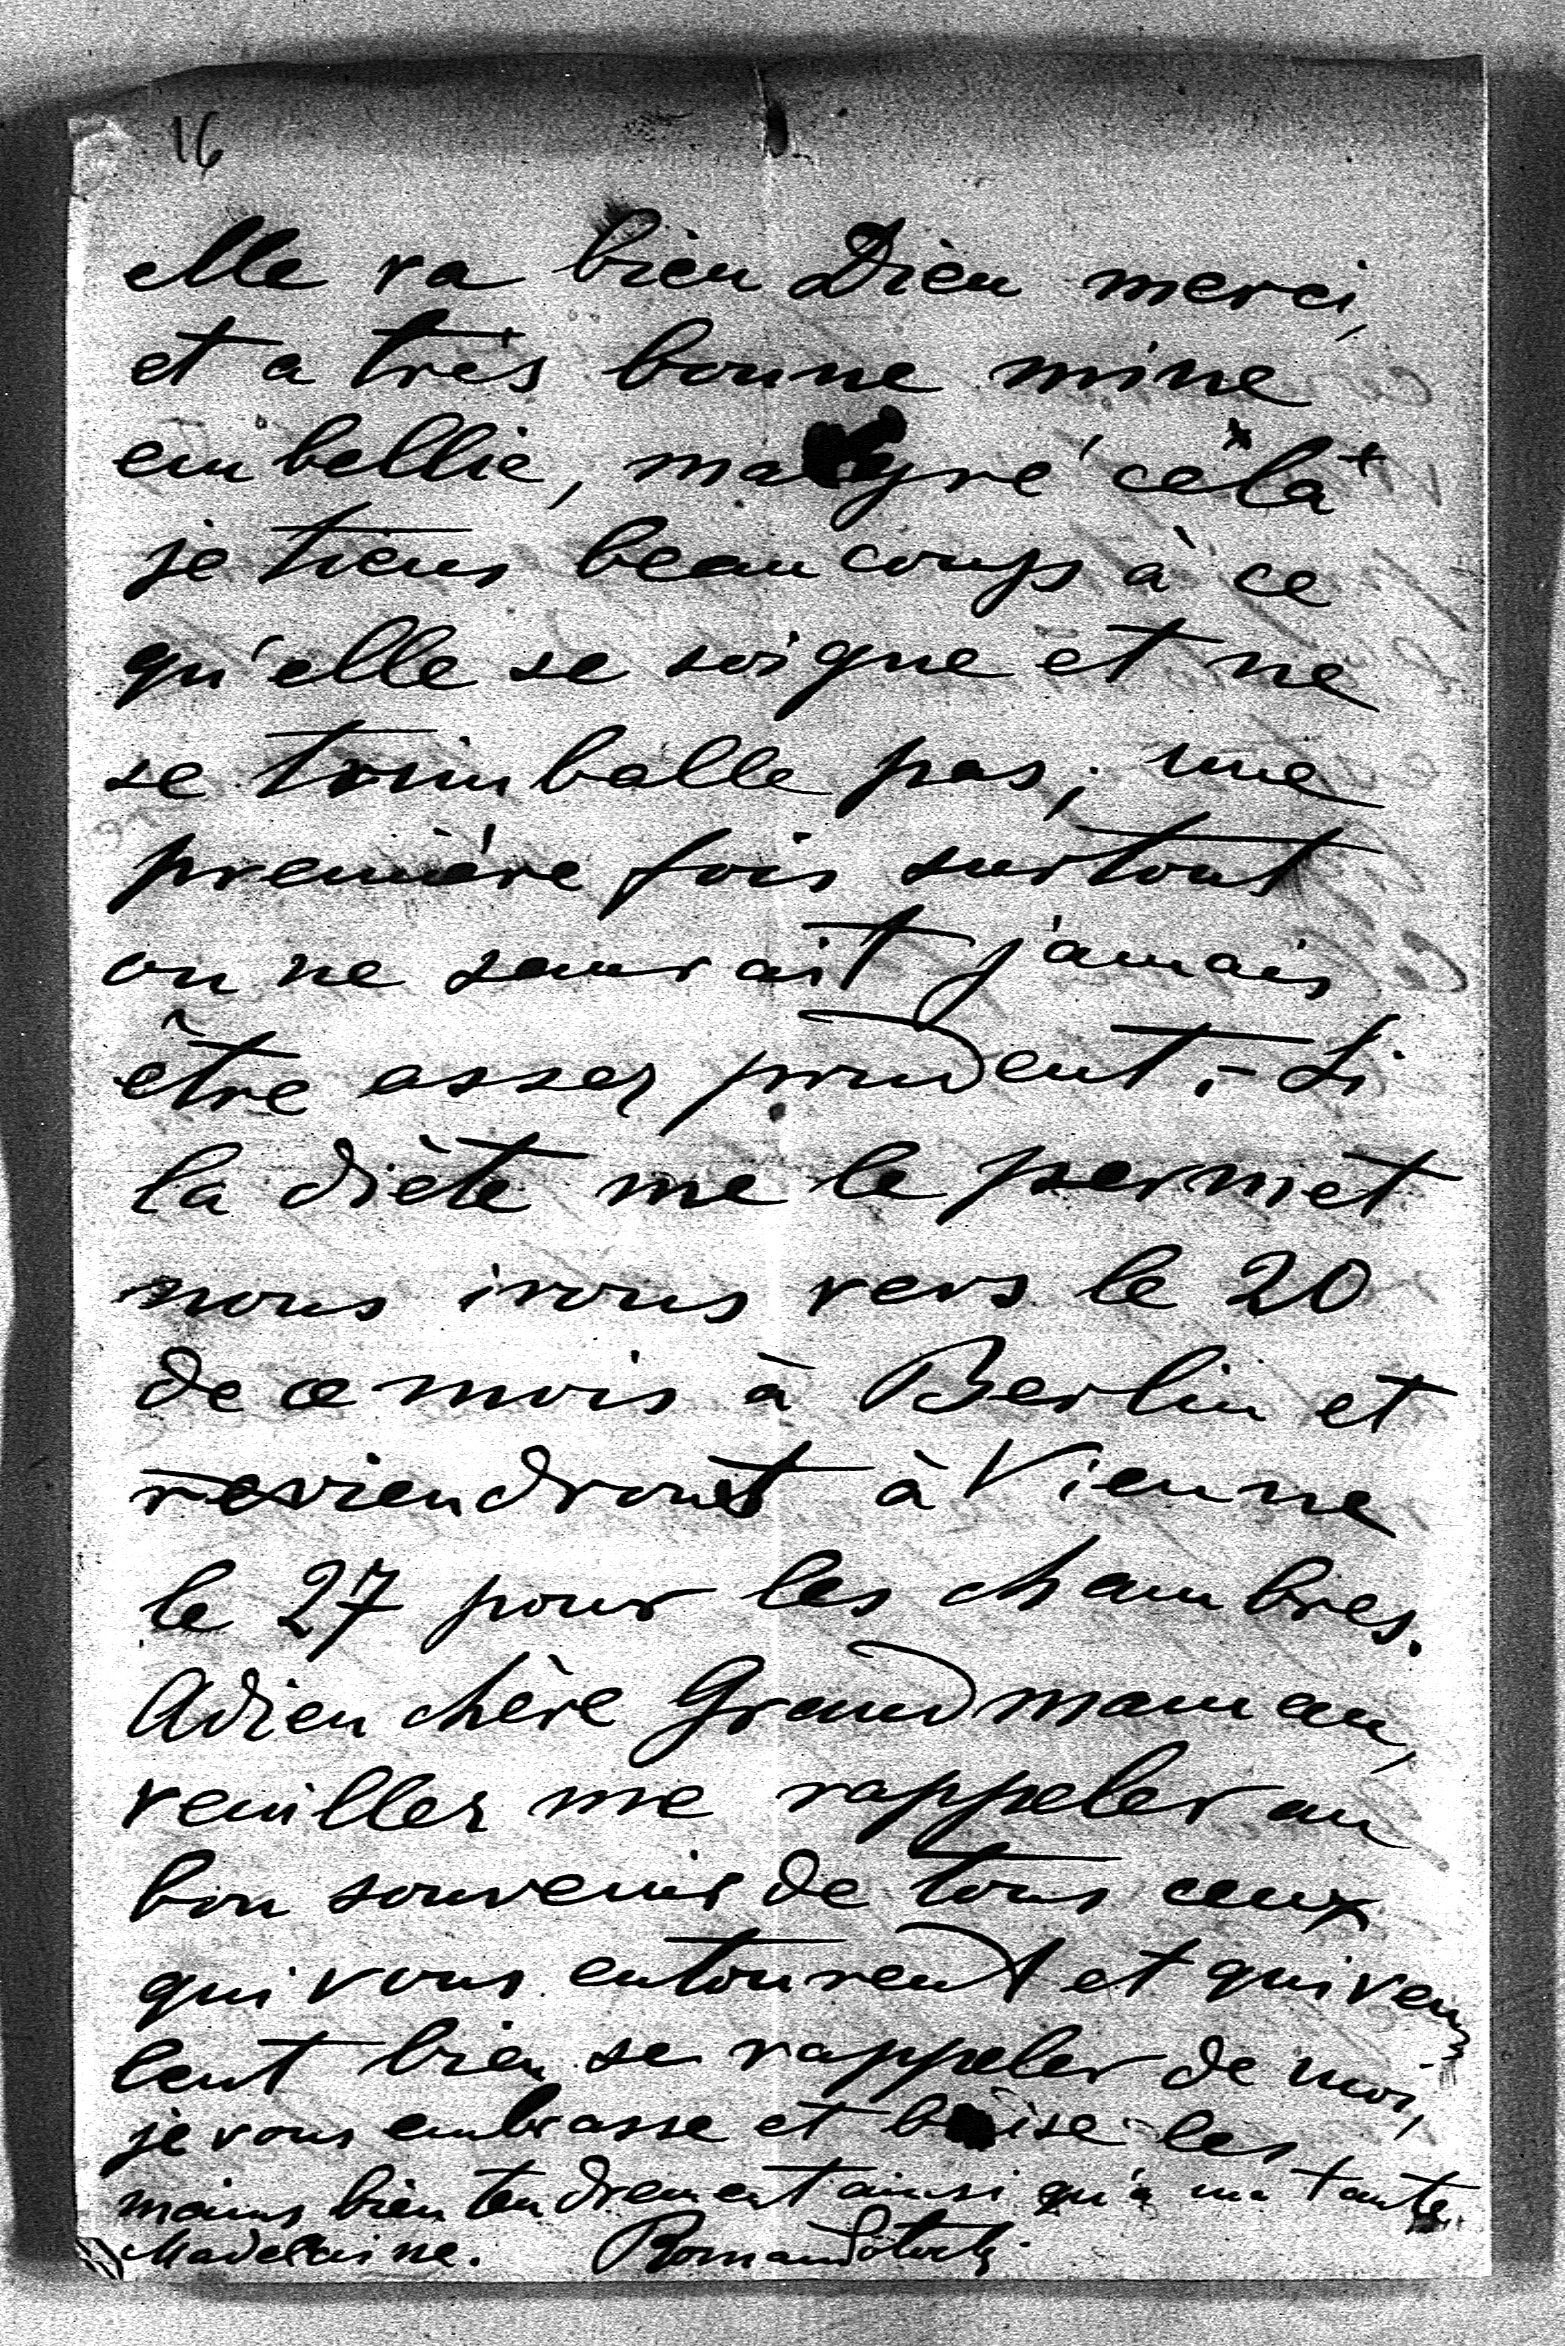 16
elle va bien Dieu merci,
et a très bonne mine
embellie, malgré célà
je tiens beaucoups à ce
qu'elle se soigne et ne
se trimballe pas; une
première fois surtout
on ne saurait jamais
être assez prudent. - Si
la diète me le permet
nous irons vers le 20
de ce mois à Berlin et
reviendront à Vienne
le 27 pour les chambres.
Adieu chère Grandmaman,
veuillez me rappeler au
bon souvenir de tous ceux
qui vous entourent et qui veu
lent bien se rappeler de moi,
je vous embrasse et baise les
mains bien tendrement ainsi qu'à ma tante
Madelaine. Roman Potocki